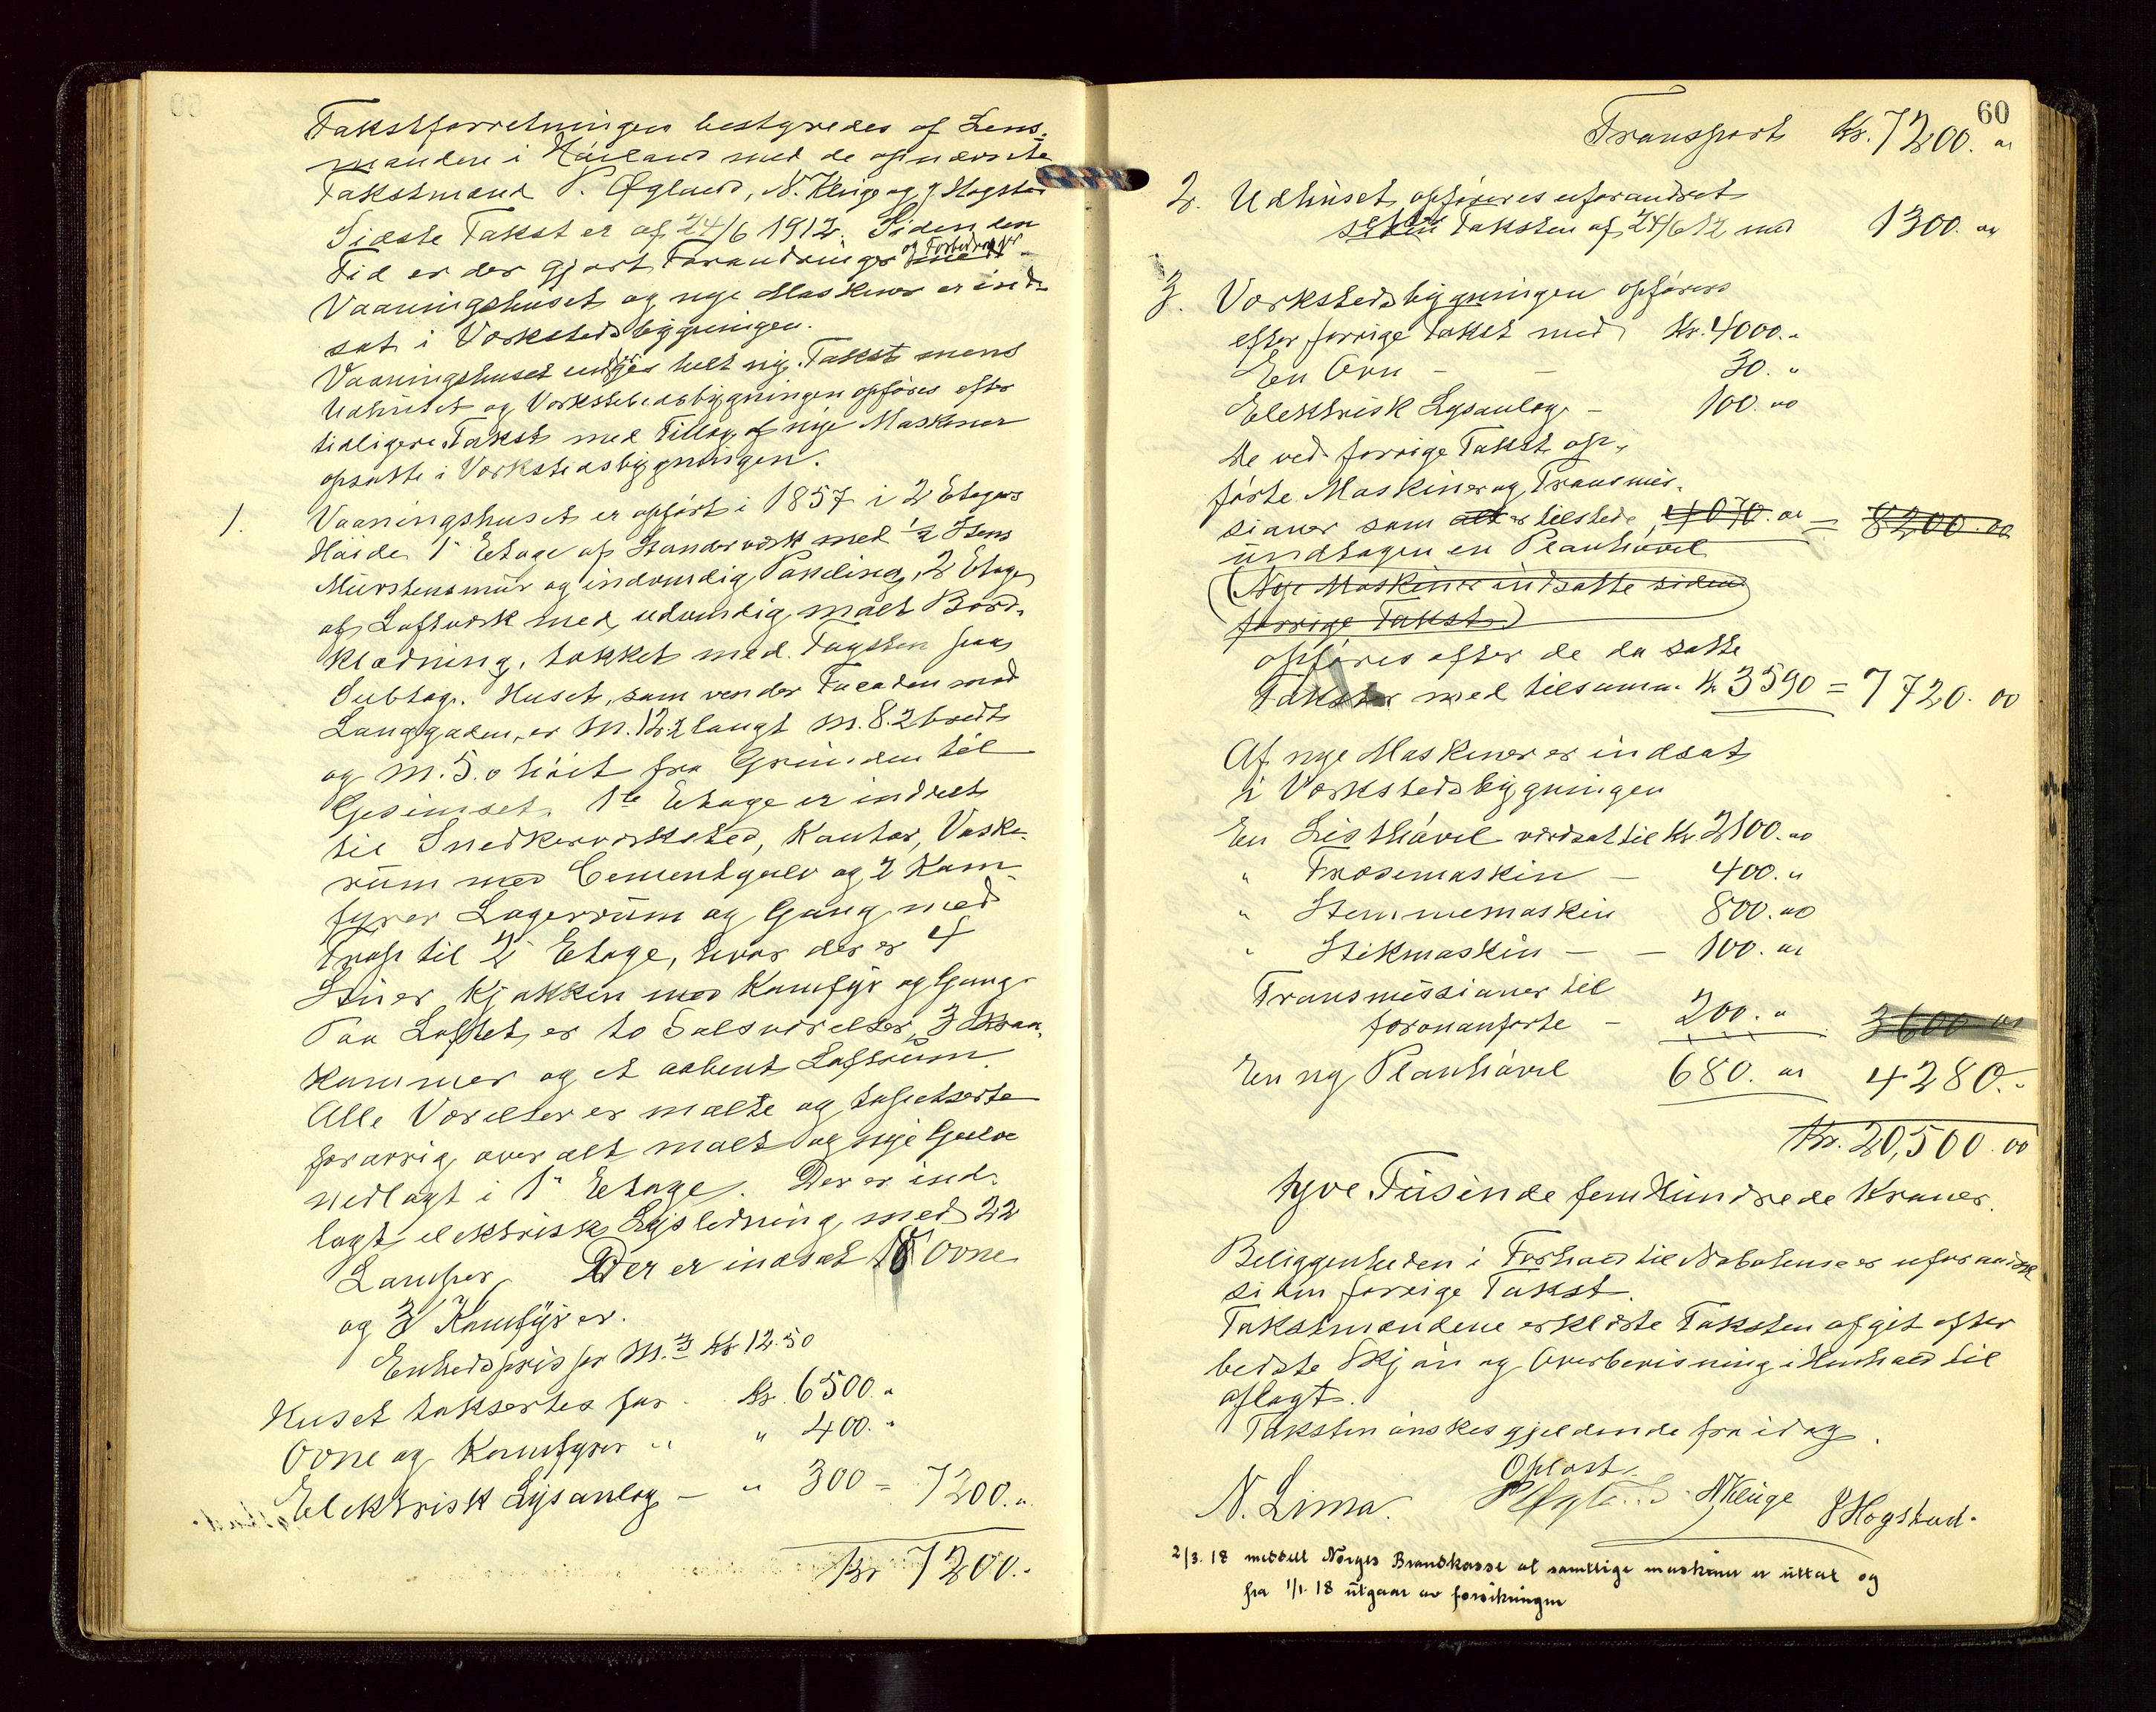 Takstforretningen bestyredes af Lens-
manden i Háland med de opnævnte
Takstmænd P. Øgland, N. Kluge og J Hogstad
Sidste Takst er af 24/6 1912. Siden den
Tid er der gjort Forandringer og Forbedringer
Vaaningshuset og nye Maskiner er ind-
sat i Værkstedsbygningen.
Vaaningshuset undergis helt ny Takst mens
Udhuset og Værkstedsbygningen opføres efter
tidligere Takst med Tillæg af nye Maskiner
opsatte i Værkstedsbygningen.
1. Vaaningshuset er opført i 1857 i 2 Etagers
Høide 1ste Etage af Standerværk med ½ Stens
Murstensmur og indvendig Paneling, 2 Etage
af Loftværk med udvendig malt Bord-
klædning, tækket med Tagsten paa
Subtag. Huset, som vender Facaden mod
Langgaden, er M. 12.2 langt M. 8.2 bredt
og M. 5.0 høit fra Grunden til
Gesimset. 1ste Etage er indredt
til Snedkerværksted, Kontor, Vaske-
rum med Cementgulv og 2 Kom-
fyrer Lagerrum og Gang med
Trap til 2 Etage, hvor der er 4
Stuer Kjøkken med Komfyr og Gang.
Paa Loftet er to Soveværelser, 3 Skraa-
kammer og et aabent Loftsrum.
Alle Værelser er malte og tapetserte
forøvrig over alt malt og nye Gulve
nedlagt i 1ste Etage. Der er ind-
lagt elektrisk Lysledning med 22
Lamper. Der er indsat Ovne
og 3 Komfyrer.
Enhedspris pr M.3 Kr 12.50
Huset taksertes for Kr. 6500.„
Ovne og Komfyrer „ „ 400.„
Elektrisk Lysanlæg – „ 300 = 7200.„
Kr 7200.„
60
Transport Kr. 7200. 00
2. Udhuset opføres uforandret
siden Taksten af 24/6 12 med 1300. 00
3. Værkstedsbygningen opføres
efter forrige Takst med Kr. 4000.„
En Ovn – – 30. „
Elektrisk Lysanlæg – 100. 00
De ved forrige Takst op-
førte Maskiner og Transmis-
sioner som alt er tilstede, 4070. 00 = 8200. 00
undtagen en Planhøvel
(Nye Maskiner indsatte siden
forrige Takst)
opføres efter de da satte
Takster med tilsamm. Kr 3590 = 7720. 00
Af nye Maskiner er indsat
i Værkstedsbygningen
En Listhøvel værdsat til Kr. 2100. 00
„ Fræsemaskin – 400. „
„ Stemmemaskin 800. 00
„ Stikmaskin – – 100. 00
Transmissioner til
foranførte – 200. „ 3600 00
En ny Planhøvel 680. 00 4280.„
Kr. 20,500. 00
tyve Tusinde fem Hundrede Kroner.
Beliggenheden i Forhold til Nabohuse er uforandret
siden forrige Takst.
Takstmændene erklærte Taksten afgit efter
bedste Skjøn og Overbevisning i Henhold til
aflagt.
Taksten ønskes gjeldende fra idag.
Oplæst.
N. Lima. P Øgland N Kluge J Hogstad.
2/3. 18 meddelt Norges Brandkasse at samtlige maskiner er uttat og
fra 1/1. 18 utgaar av forsikringen